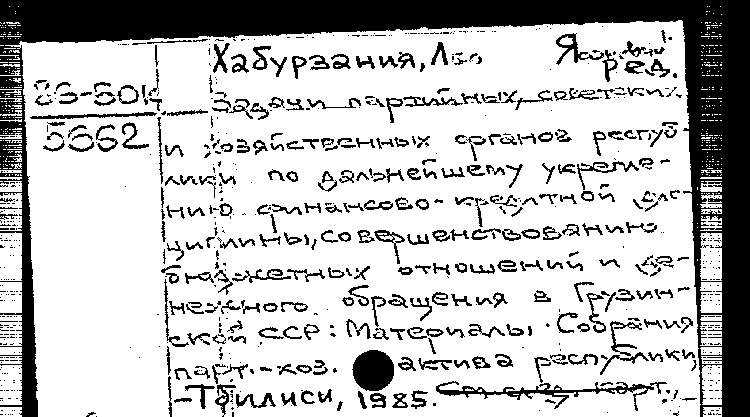 Хабурзания, Лео
ред.
86-50к
5662
Задачи партийных, советских
и хозяйственных органов респуб-
лики по дальнейшему укрепле-
нию финансово-кредитной дис-
циплины, совершенствованию
бюджетных отношений и де-
нежного обращения в Грузин-
ской ССР: Материалы Собрания
парт.-хоз. актива республики,
-Тбилиси, 1985. См. след. карт.